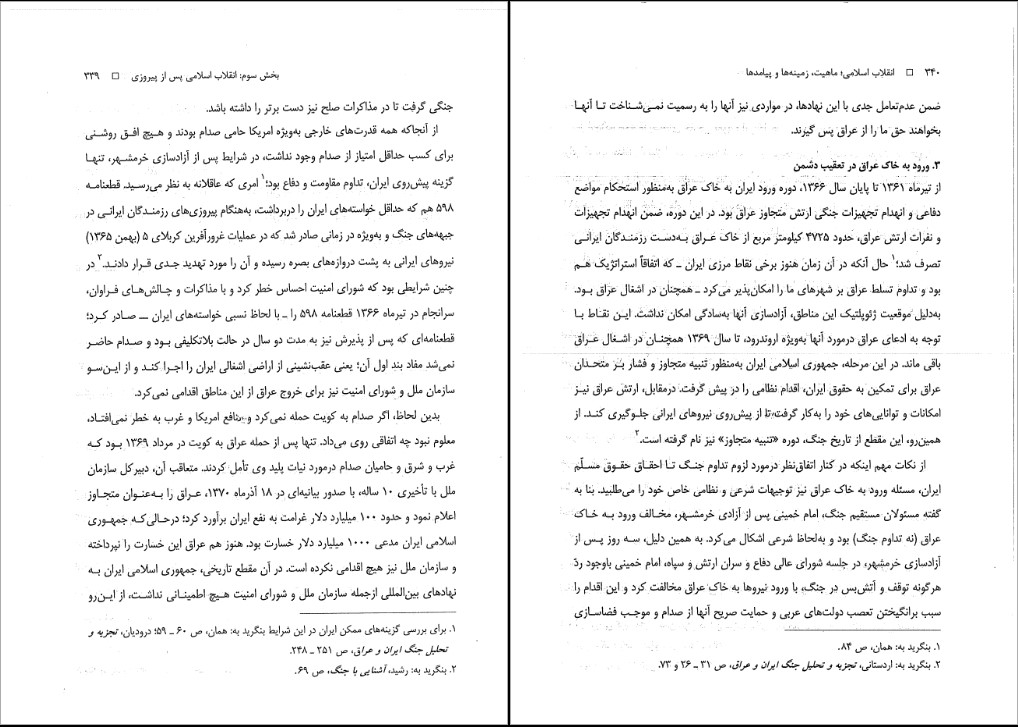 بخش سوم: انقلاب اسلامی پس از پیروزی □ ۳۳۹
جنگی گرفت تا در مذاکرات صلح نیز دست برتر را داشته باشد.
از آنجاکه همه قدرت‌های خارجی به‌ویژه امریکا حامی صدام بودند و هیچ افق روشنی
برای کسب حداقل امتیاز از صدام وجود نداشت، در شرایط پس از آزادسازی خرمشهر، تنها
گزینه پیش‌روی ایران، تداوم مقاومت و دفاع بود؛۱ امری که عاقلانه به نظر می‌رسید. قطعنامه
۵۹۸ هم که حداقل خواسته‌های ایران را دربرداشت، به‌هنگام پیروزی‌های رزمندگان ایرانی در
جبهه‌های جنگ و به‌ویژه در زمانی صادر شد که در عملیات غرورآفرین کربلای ۵ (بهمن ۱۳۶۵)
نیروهای ایرانی به پشت دروازه‌های بصره رسیده و آن را مورد تهدید جدی قرار دادند.۲ در
چنین شرایطی بود که شورای امنیت احساس خطر کرد و با مذاکرات و چالش‌های فراوان،
سرانجام در تیرماه ۱۳۶۶ قطعنامه ۵۹۸ را ـ با لحاظ نسبی خواسته‌های ایران ـ صادر کرد؛
قطعنامه‌ای که پس از پذیرش نیز به مدت دو سال در حالت بلاتکلیفی بود و صدام حاضر
نمی‌شد مفاد بند اول آن؛ یعنی عقب‌نشینی از اراضی اشغالی ایران را اجرا کند و از این‌سو
سازمان ملل و شورای امنیت نیز برای خروج عراق از این مناطق اقدامی نمی‌کرد.
بدین لحاظ، اگر صدام به کویت حمله نمی‌کرد و منافع امریکا و غرب به خطر نمی‌افتاد،
معلوم نبود چه اتفاقی روی می‌داد. تنها پس از حمله عراق به کویت در مرداد ۱۳۶۹ بود که
غرب و شرق و حامیان صدام درمورد نیات پلید وی تأمل کردند. متعاقب آن، دبیرکل سازمان
ملل با تأخیری ۱۰ ساله، با صدور بیانیه‌ای در ۱۸ آذرماه ۱۳۷۰، عراق را به‌عنوان متجاوز
اعلام نمود و حدود ۱۰۰ میلیارد دلار غرامت به نفع ایران برآورد کرد؛ درحالی‌که جمهوری
اسلامی ایران مدعی ۱۰۰۰ میلیارد دلار خسارت بود. هنوز هم عراق این خسارت را نپرداخته
و سازمان ملل نیز هیچ اقدامی نکرده است. در آن مقطع تاریخی، جمهوری اسلامی ایران به
نهادهای بین‌المللی ازجمله سازمان ملل و شورای امنیت هیچ اطمینانی نداشت، از این‌رو
۱. برای بررسی گزینه‌های ممکن ایران در این شرایط بنگرید به: همان، ص ۶۰ ـ ۵۹؛ درودیان، تجزیه و
تحلیل جنگ ایران و عراق، ص ۲۵۱ ـ ۲۴۸.
۲. بنگرید به: رشید، آشنایی با جنگ، ص ۶۹.
۳۴۰ □ انقلاب اسلامی؛ ماهیت، زمینه‌ها و پیامدها
ضمن عدم‌تعامل جدی با این نهادها، در مواردی نیز آنها را به رسمیت نمی‌شناخت تا آنها
بخواهند حق ما را از عراق پس گیرند.
۳. ورود به خاک عراق در تعقیب دشمن
از تیرماه ۱۳۶۱ تا پایان سال ۱۳۶۶، دوره ورود ایران به خاک عراق به‌منظور استحکام مواضع
دفاعی و انهدام تجهیزات جنگی ارتش متجاوز عراق بود. در این دوره، ضمن انهدام تجهیزات
و نفرات ارتش عراق، حدود ۴۷۲۵ کیلومتر مربع از خاک عراق به‌دست رزمندگان ایرانی
تصرف شد؛۱ حال آنکه در آن زمان هنوز برخی نقاط مرزی ایران ـ که اتفاقاً استراتژیک هم
بود و تداوم تسلط عراق بر شهرهای ما را امکان‌پذیر می‌کرد ـ همچنان در اشغال عراق بود.
به‌دلیل موقعیت ژئوپلتیک این مناطق، آزادسازی آنها به‌سادگی امکان نداشت. این نقاط با
توجه به ادعای عراق درمورد آنها به‌ویژه اروندرود، تا سال ۱۳۶۹ همچنان در اشغال عراق
باقی ماند. در این مرحله، جمهوری اسلامی ایران به‌منظور تنبیه متجاوز و فشار بر متحدان
عراق برای تمکین به حقوق ایران، اقدام نظامی را در پیش گرفت. درمقابل، ارتش عراق نیز
امکانات و توانایی‌های خود را به‌کار گرفت تا از پیش‌روی نیروهای ایرانی جلوگیری کند. از
همین‌رو، این مقطع از تاریخ جنگ، دوره «تنبیه متجاوز» نیز نام گرفته است.۲
از نکات مهم اینکه در کنار اتفاق‌نظر درمورد لزوم تداوم جنگ تا احقاق حقوق مسلّم
ایران، مسئله ورود به خاک عراق نیز توجیهات شرعی و نظامی خاص خود را می‌طلبید. بنا به
گفته مسئولان مستقیم جنگ، امام خمینی پس از آزادی خرمشهر، مخالف ورود به خاک
عراق (نه تداوم جنگ) بود و به‌لحاظ شرعی اشکال می‌کرد. به همین دلیل، سه روز پس از
آزادسازی خرمشهر، در جلسه شورای عالی دفاع و سران ارتش و سپاه، امام خمینی باوجود ردّ
هرگونه توقف و آتش‌بس در جنگ، با ورود نیروها به خاک عراق مخالفت کرد و این اقدام را
سبب برانگیختن تعصب دولت‌های عربی و حمایت صریح آنها از صدام و موجب فضاسازی
۱. بنگرید به: همان، ص ۸۴.
۲. بنگرید به: اردستانی، تجزیه و تحلیل جنگ ایران و عراق، ص ۳۱ ـ ۲۶ و ۷۳.